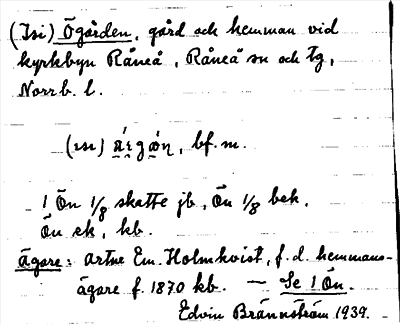 (Isi) Ögården, gård och hemman vid
kyrkbyn Råneå, Råneå sn och tg,
Norrb. l.
bf. m.
1 Ön 1/8 skatte jb, Ön 1/8 bek.
Ön ek, kb.
Ägare: Artur Em. Holmkvist, f.d. hemmans-
ägare f. 1870 kb. — Se 1 Ön.
Edvin Brännström 1939.